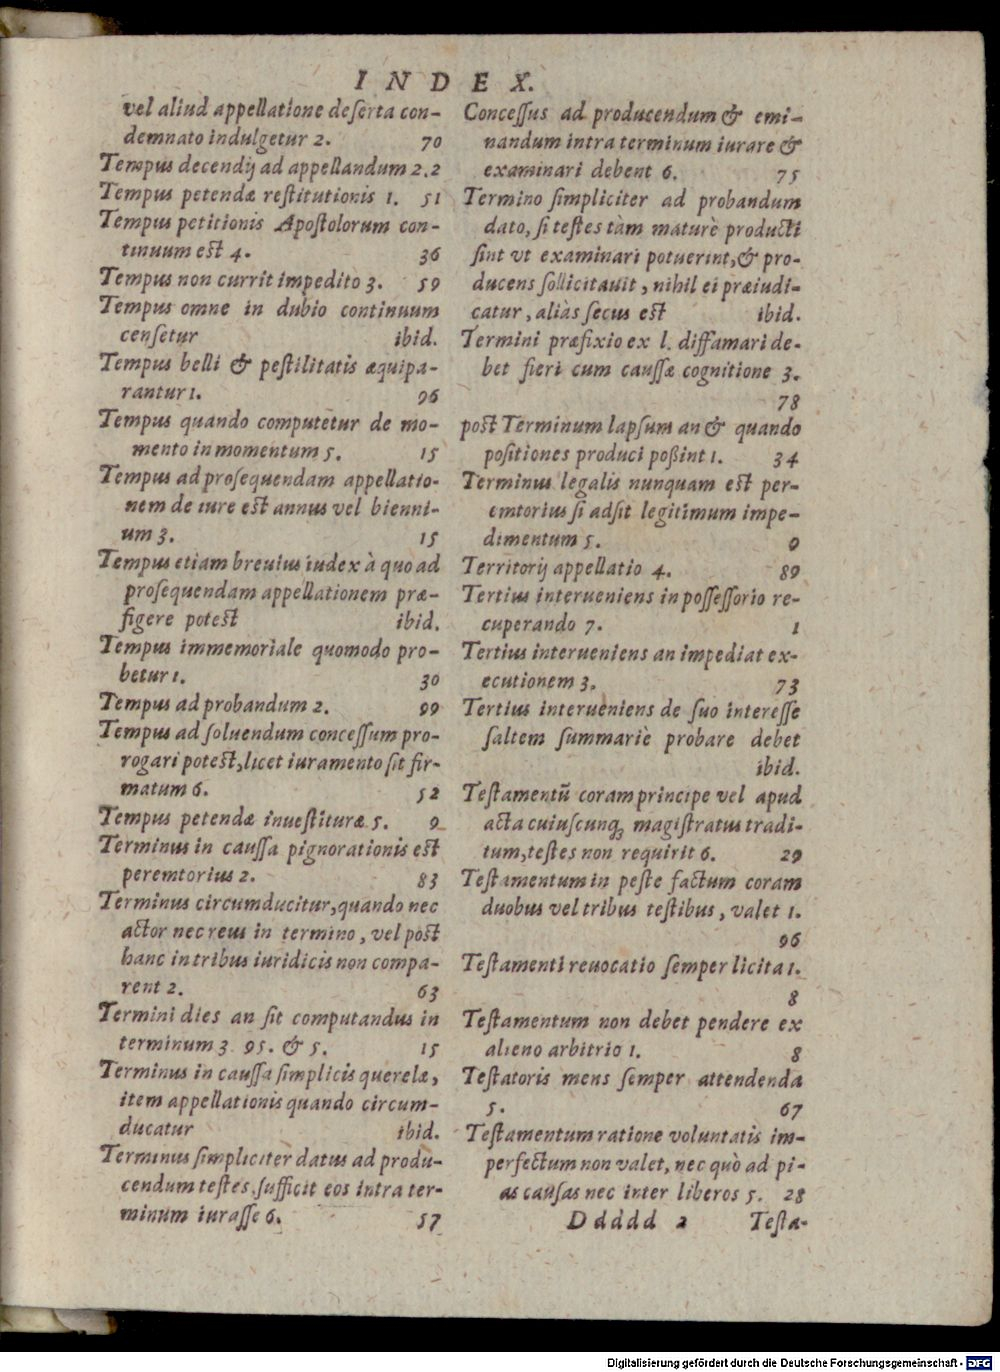 INDEX.
vel aliud appellatione deſerta con-
demnato indulgetur 2. 70
Tempus decendij ad appellandum 2.2
Tempus petendæ reſtitutionis 1. 51
Tempus petitionis Apoſtolorum con-
tinuum est 4. 36
Tempus non currit impedito 3. 59
Tempus omne in dubio continuum
cenſetur ibid.
Tempus belli & peſtilitatis æquipa-
rantur 1. 96
Tempus quando computetur de mo-
mento in momentum 5. 15
Tempus ad proſequendam appellatio-
nem de iure est annus vel bienni-
um 3. 15
Tempus etiam breuius iudex à quo ad
proſequendam appellationem præ-
figere potest ibid.
Tempus immemoriale quomodo pro-
betur 1. 30
Tempus ad probandum 2. 99
Tempus ad ſoluendum conceſſum pro-
rogari potest, licet iuramento ſit fir-
matum 6. 52
Tempus petendæ inueſtituræ 5. 9
Terminus in cauſſa pignorationis est
peremtorius 2. 83
Terminus circumducitur, quando nec
actor nec reus in termino, vel post
hanc in tribus iuridicis non compa-
rent 2. 63
Termini dies an ſit computandus in
terminum 3 95. & 5. 15
Terminus in cauſſa ſimplicis querelæ,
item appellationis quando circum-
ducatur ibid.
Terminus ſimpliciter datus ad produ-
cendum teſtes, ſufficit eos intra ter-
minum iuraſſe 6. 57
Conceſſus ad producendum & emi-
nandum intra terminum iurare &
examinari debent 6. 75
Termino ſimpliciter ad probandum
dato, ſi teſtes tàm maturè producti
ſint vt examinari potuerint, & pro-
ducens ſollicitauit, nihil ei præiudi-
catur, aliàs ſecus est ibid.
Termini præfixio ex l. diffamari de-
bet fieri cum cauſſæ cognitione 3.
78
post Terminum lapſum an & quando
poſitiones produci poßint 1. 34
Terminus legalis nunquam est per-
emtorius ſi adſit legitimum impe-
dimentum 5. 9
Territorij appellatio 4. 89
Tertius interueniens in poſſeſſorio re-
cuperando 7. 1
Tertius interueniens an impediat ex-
ecutionem 3. 73
Tertius interueniens de ſuo intereſſe
ſaltem ſummariè probare debet
ibid.
Teſtamentū coram principe vel apud
acta cuiuſcunq; magiſtratus tradi-
tum, teſtes non requirit 6. 29
Teſtamentum in peſte factum coram
duobus vel tribus teſtibus, valet 1.
96
Teſtamenti reuocatio ſemper licita 1.
8
Teſtamentum non debet pendere ex
alieno arbitrio 1. 8
Teſtatoris mens ſemper attendenda
5. 67
Teſtamentum ratione voluntatis im-
perfectum non valet, nec quò ad pi-
as cauſas nec inter liberos 5. 28
Ddddd 2 Teſta-
Digitalisierung gefördert durch die Deutsche Forschungsgemeinschaft - DFG